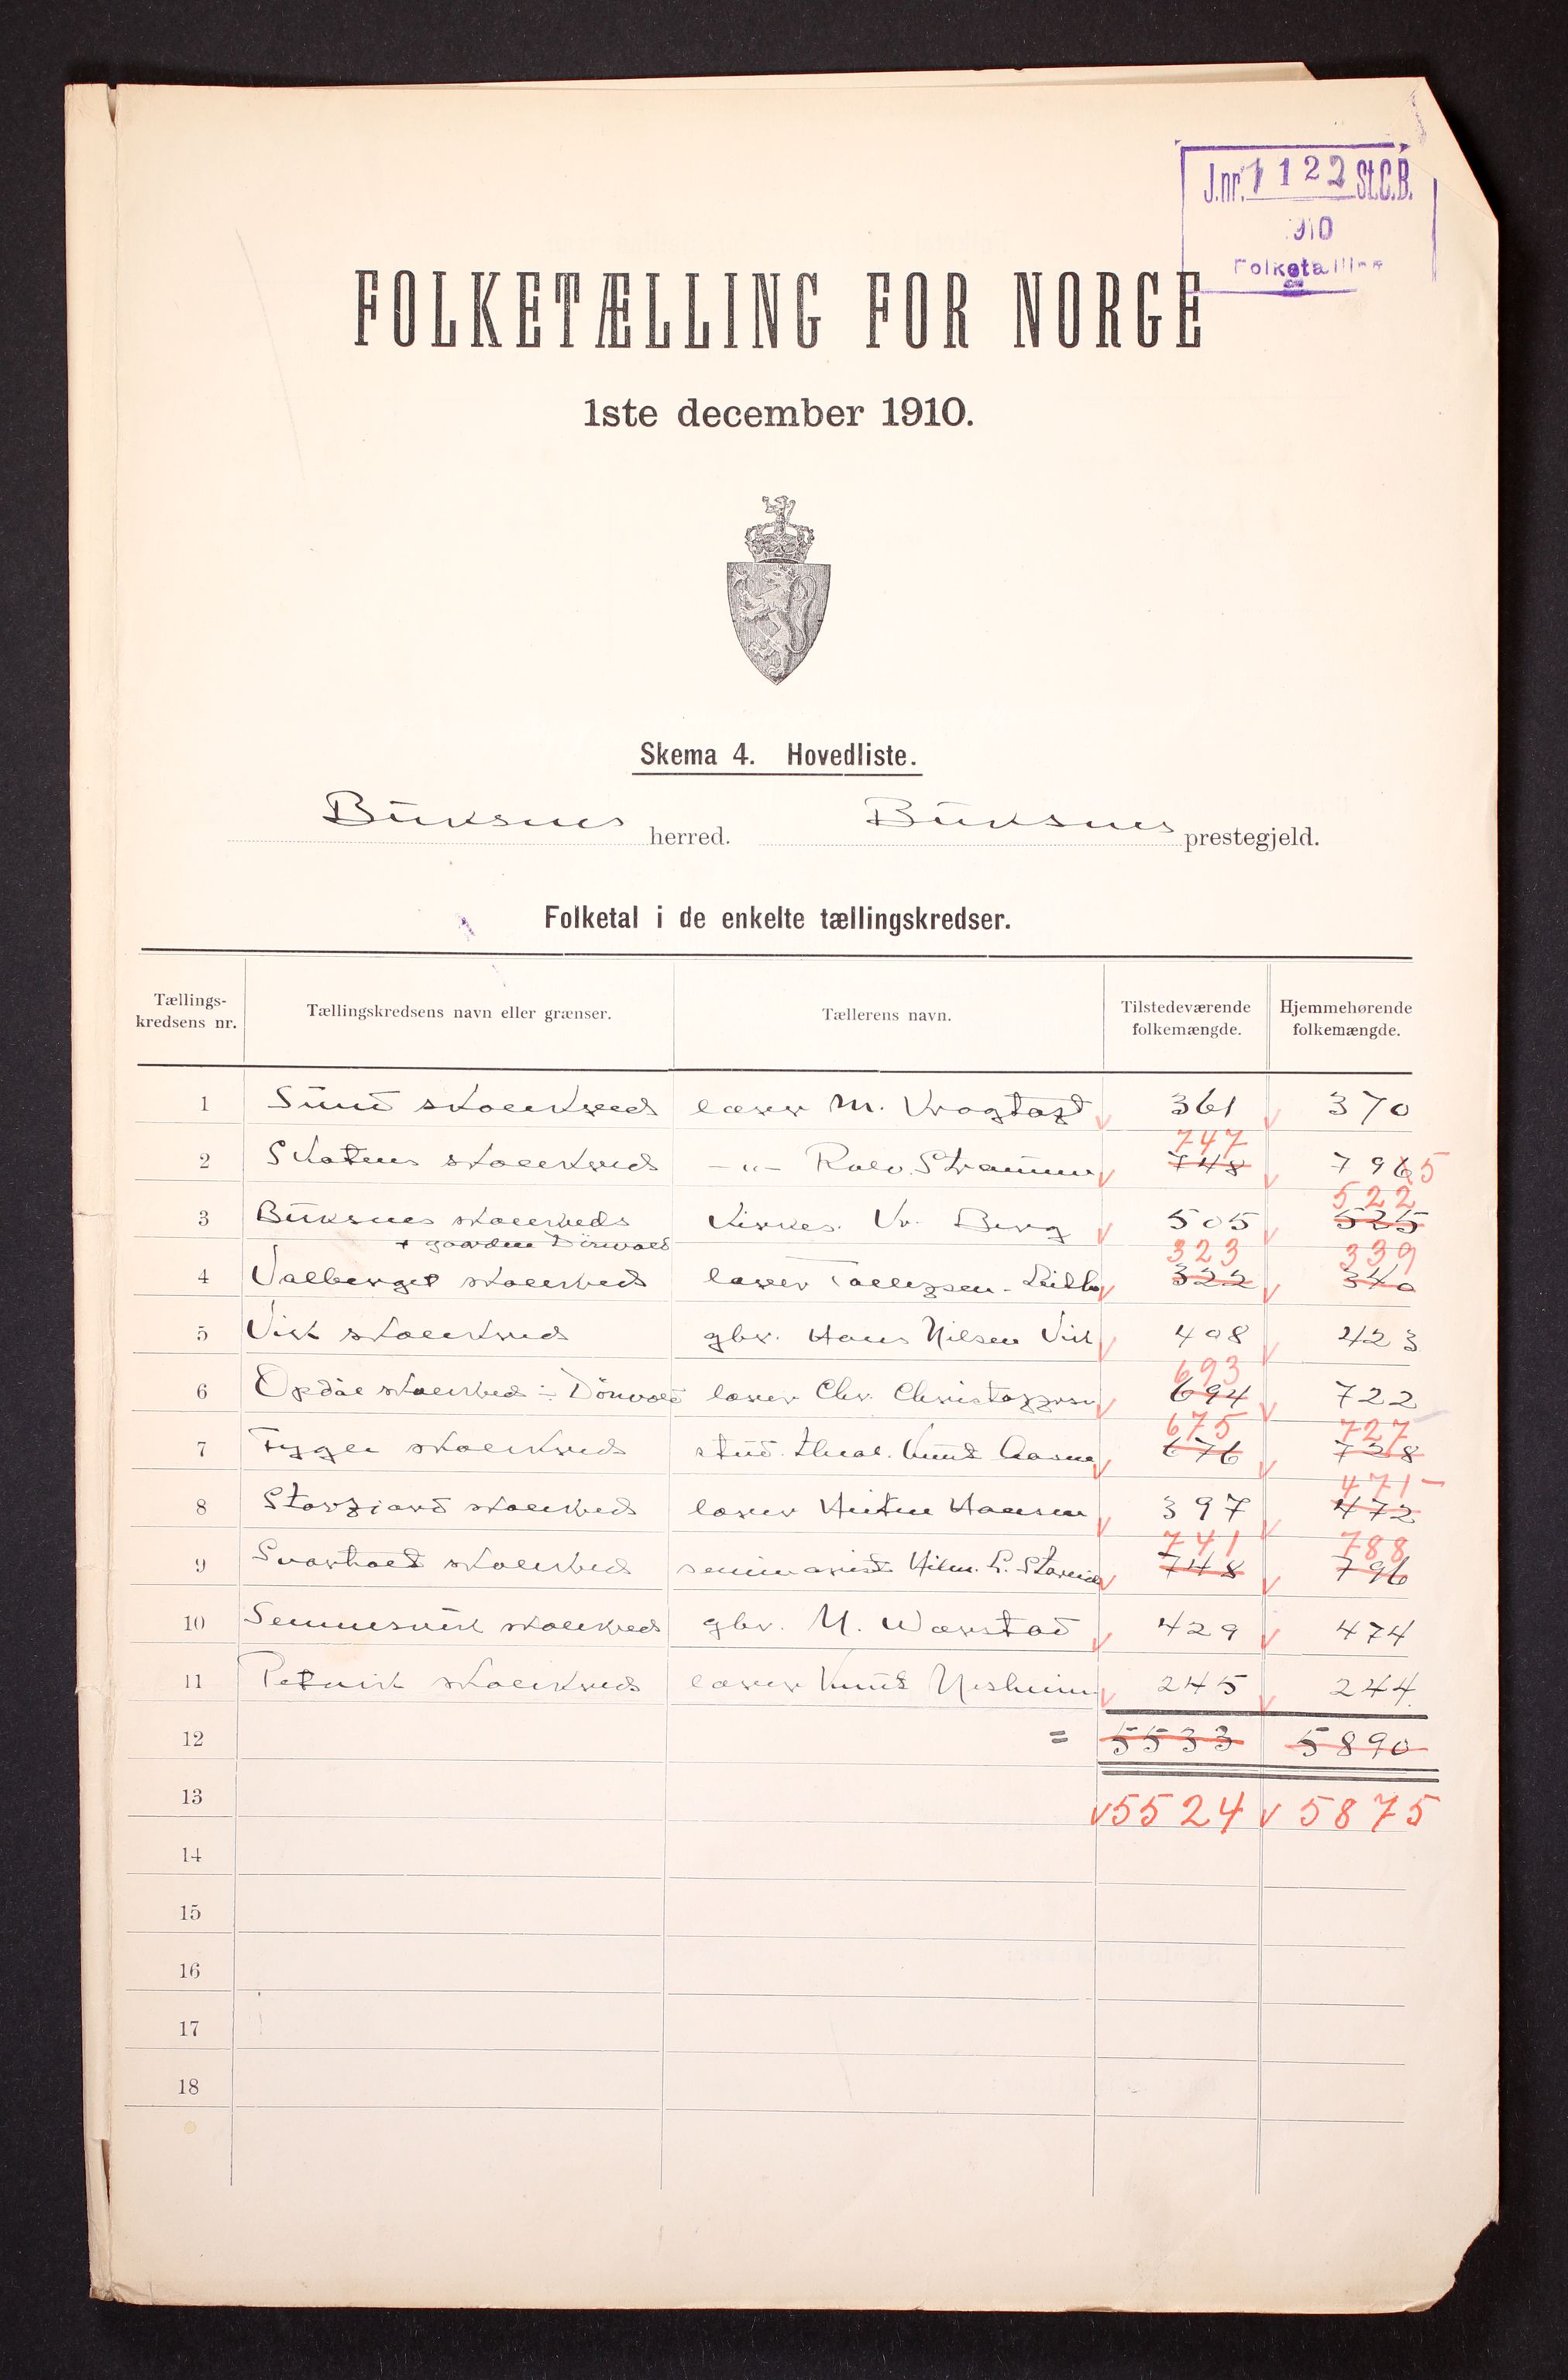 J.nr. 1122 St.C.B.
1910
Folketælling
FOLKETÆLLING FOR NORGE
1ste december 1910.
Skema 4. Hovedliste.
Buksnes herred. Buksnes prestegjeld.
Folketal i de enkelte tællingskredser.
Tællings-kredsens nr. Tællingskredsens navn eller grænser. Tællerens navn. Tilstedeværende folkemængde. Hjemmehørende folkemængde.
1 Sund skolekreds lærer M. Krogtoft 361 370
747
2 Skotnes skolekreds -"- Rolv Straumnes 748 796 5
522
3 Buksnes skolekreds kirkes. Kr. Berg 505 525
+ gaarden Dönvold 323 339
4 Valberget skolekreds lærer Tollefsen 322 340
5 Vik skolekreds gbr. Hans Nilsen Vik 408 423
693
6 Opdöl skolekreds ÷ Dönvold lærer Chr. Christoffersen 694 722
675 727
7 Fygle skolekreds stud. theol. Knut 676 728
471
8 Storfjord skolekreds lærer Hansen 397 472
741 788
9 Svarholt skolekreds seminarist Hilm. L. 748 796
10 Sennesvik skolekreds gbr. M. Wærstad 429 474
11 Petvik skolekreds lærer Knut Nesheim 245 244
12 = 5533 5890
13 5524 5875
14
15
16
17
18